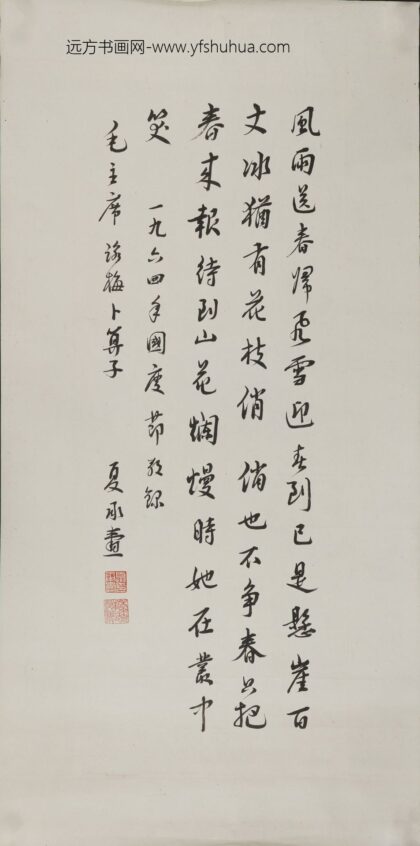 远方书画网-www.yfshuhua.com
風雨送春歸飛雪迎春到已是懸崖百
丈冰猶有花枝俏 俏也不争春只把
春來報待到山花爛熳時她在叢中
笑 一九六四年國慶節敬錄
毛主席詠梅卜算子 夏承燾